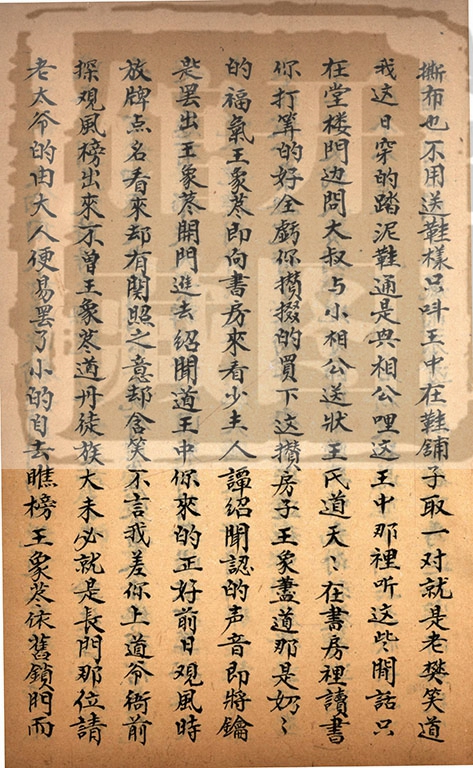 撕布也不用送鞋樣只叫王中在鞋鋪子取一对就是老樊笑道
我这日穿的踏泥鞋通是與相公哩这王中那裡听这些閒話只
在堂楼門边問大叔与小相公送狀王氏道天〻在書房裡讀書
你打筭的好全虧你攢掇的買下这攢房子王象藎道那是奶〻
的福氣王象荩即向書房來看少主人譚紹聞認的声音即將鑰
匙罢出王象荩開門進去紹聞道王中你來的正好前日观風時
放牌点名看來却有関照之意却含笑不言我差你上道爷衙前
探观風榜出來不曾王象荩道丹徒族大未必就是長門那位請
老太爷的由大人便易罢了小的自去瞧榜王象荩依舊鎖門而